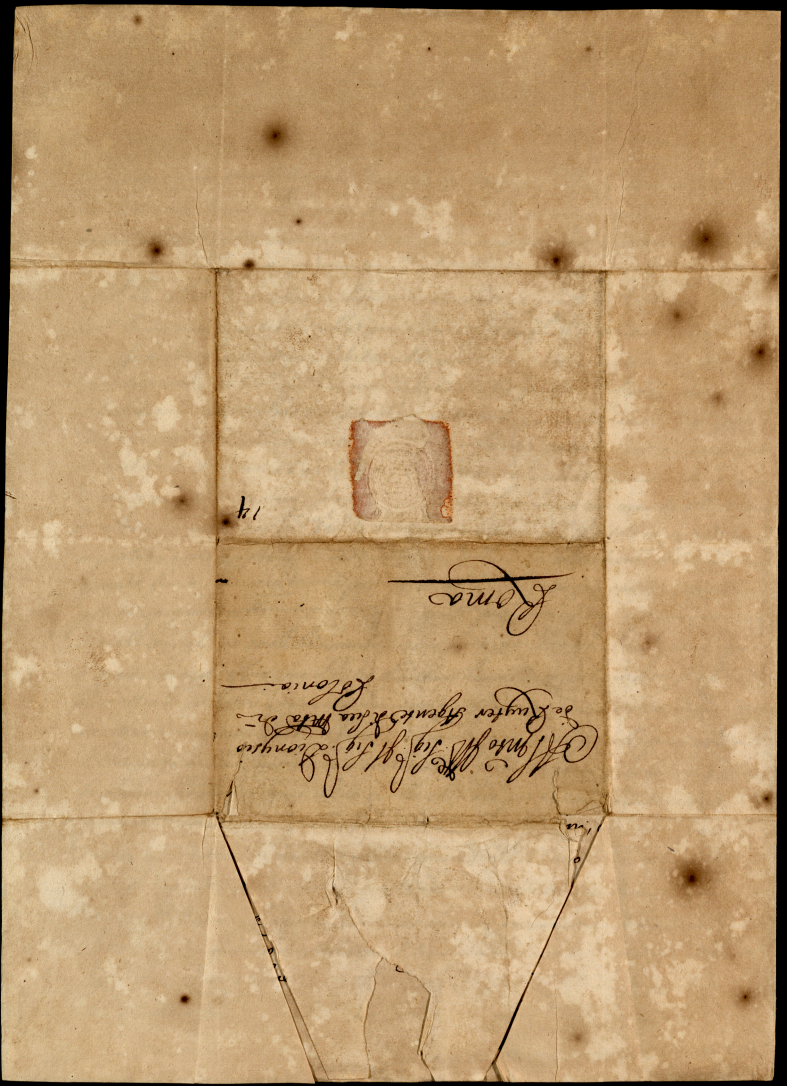 Al m:to Ill:re Sig:r il Sig:r Dionysio
de Ruyter Agente di Sua M:tà di
Polonia
Roma
14